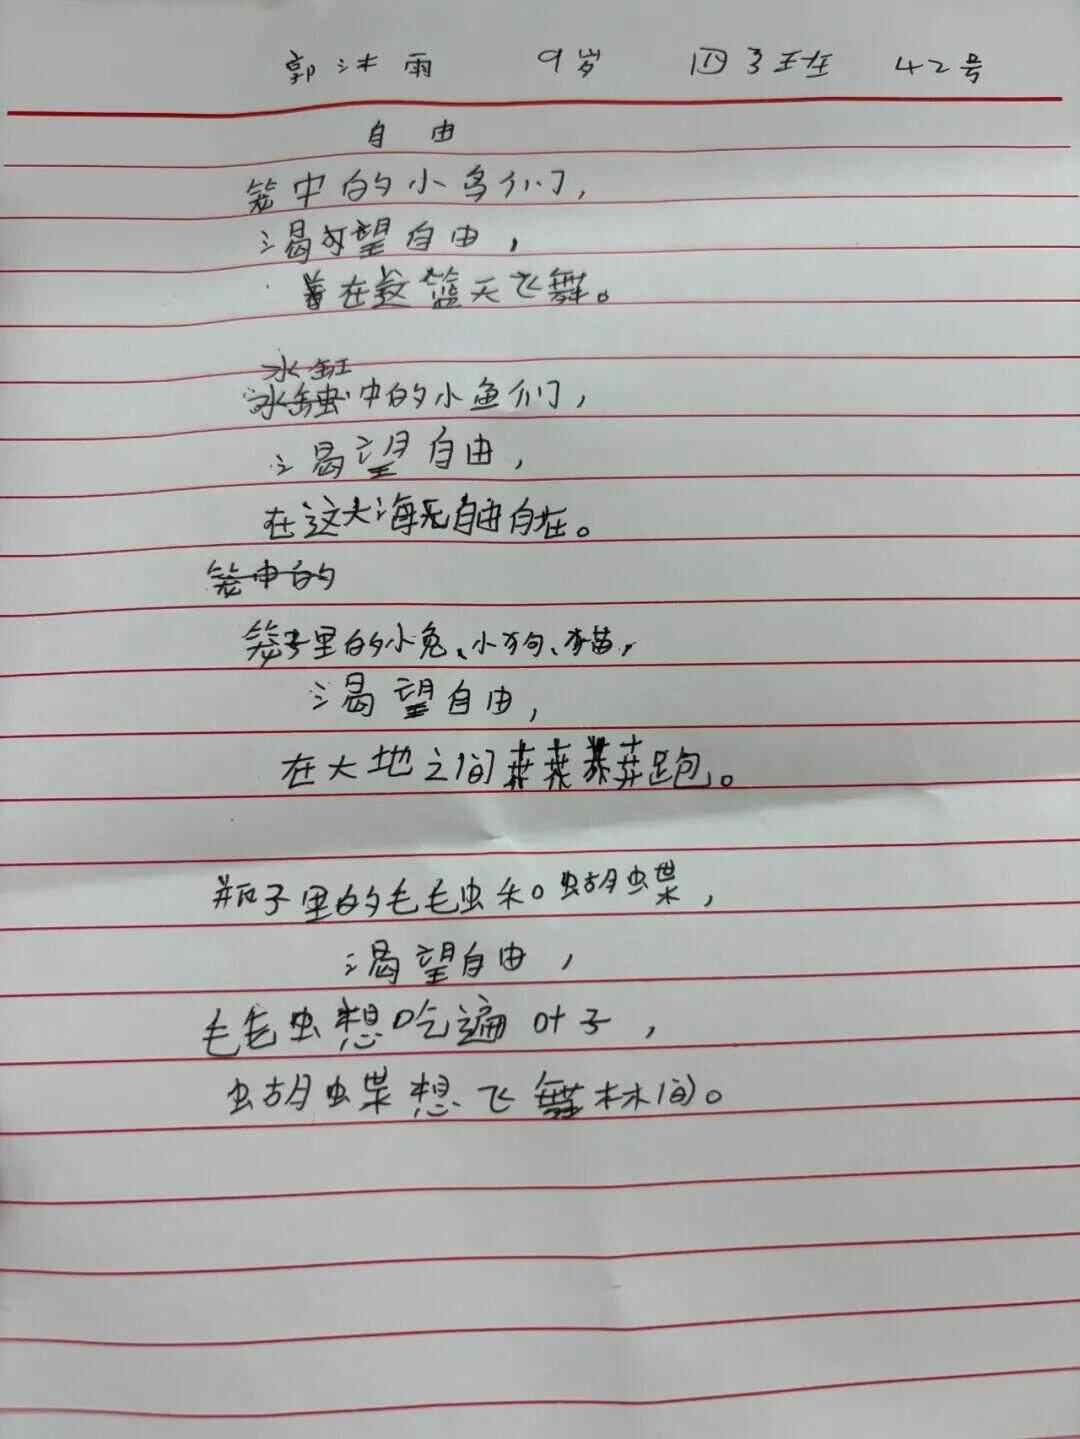 郭沐雨 9岁 四3班 42号
自由
笼中的小鸟们，
渴望自由，
在这篮天飞舞。
水缸
中的小鱼们，
渴望自由，
在这大海无自由自在。
笼中的
笼子里的小兔、小狗、猫，
渴望自由，
在大地之间奔跑。
瓶子里的毛毛虫和蝴蝶，
渴望自由，
毛毛虫想吃遍叶子，
蝴蝶想飞舞林间。